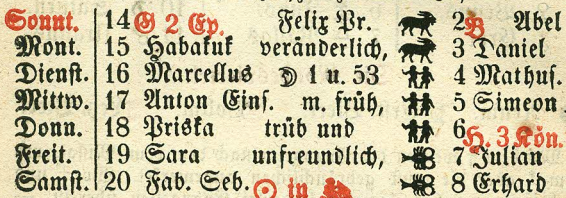 Sonnt. 14 G 2 Ep. Felix Pr. 2 B Abel
Mont. 15 Habakuk veränderlich, 3 Daniel
Dienst. 16 Marcellus ☽ 1 u. 53 4 Mathus.
Mittw. 17 Anton Eins. m. früh, 5 Simeon
Donn. 18 Priska trüb und 6 H. 3 Kön.
Freit. 19 Sara unfreundlich, 7 Julian
Samst. 20 Fab. Seb. ☉ in 8 Erhard